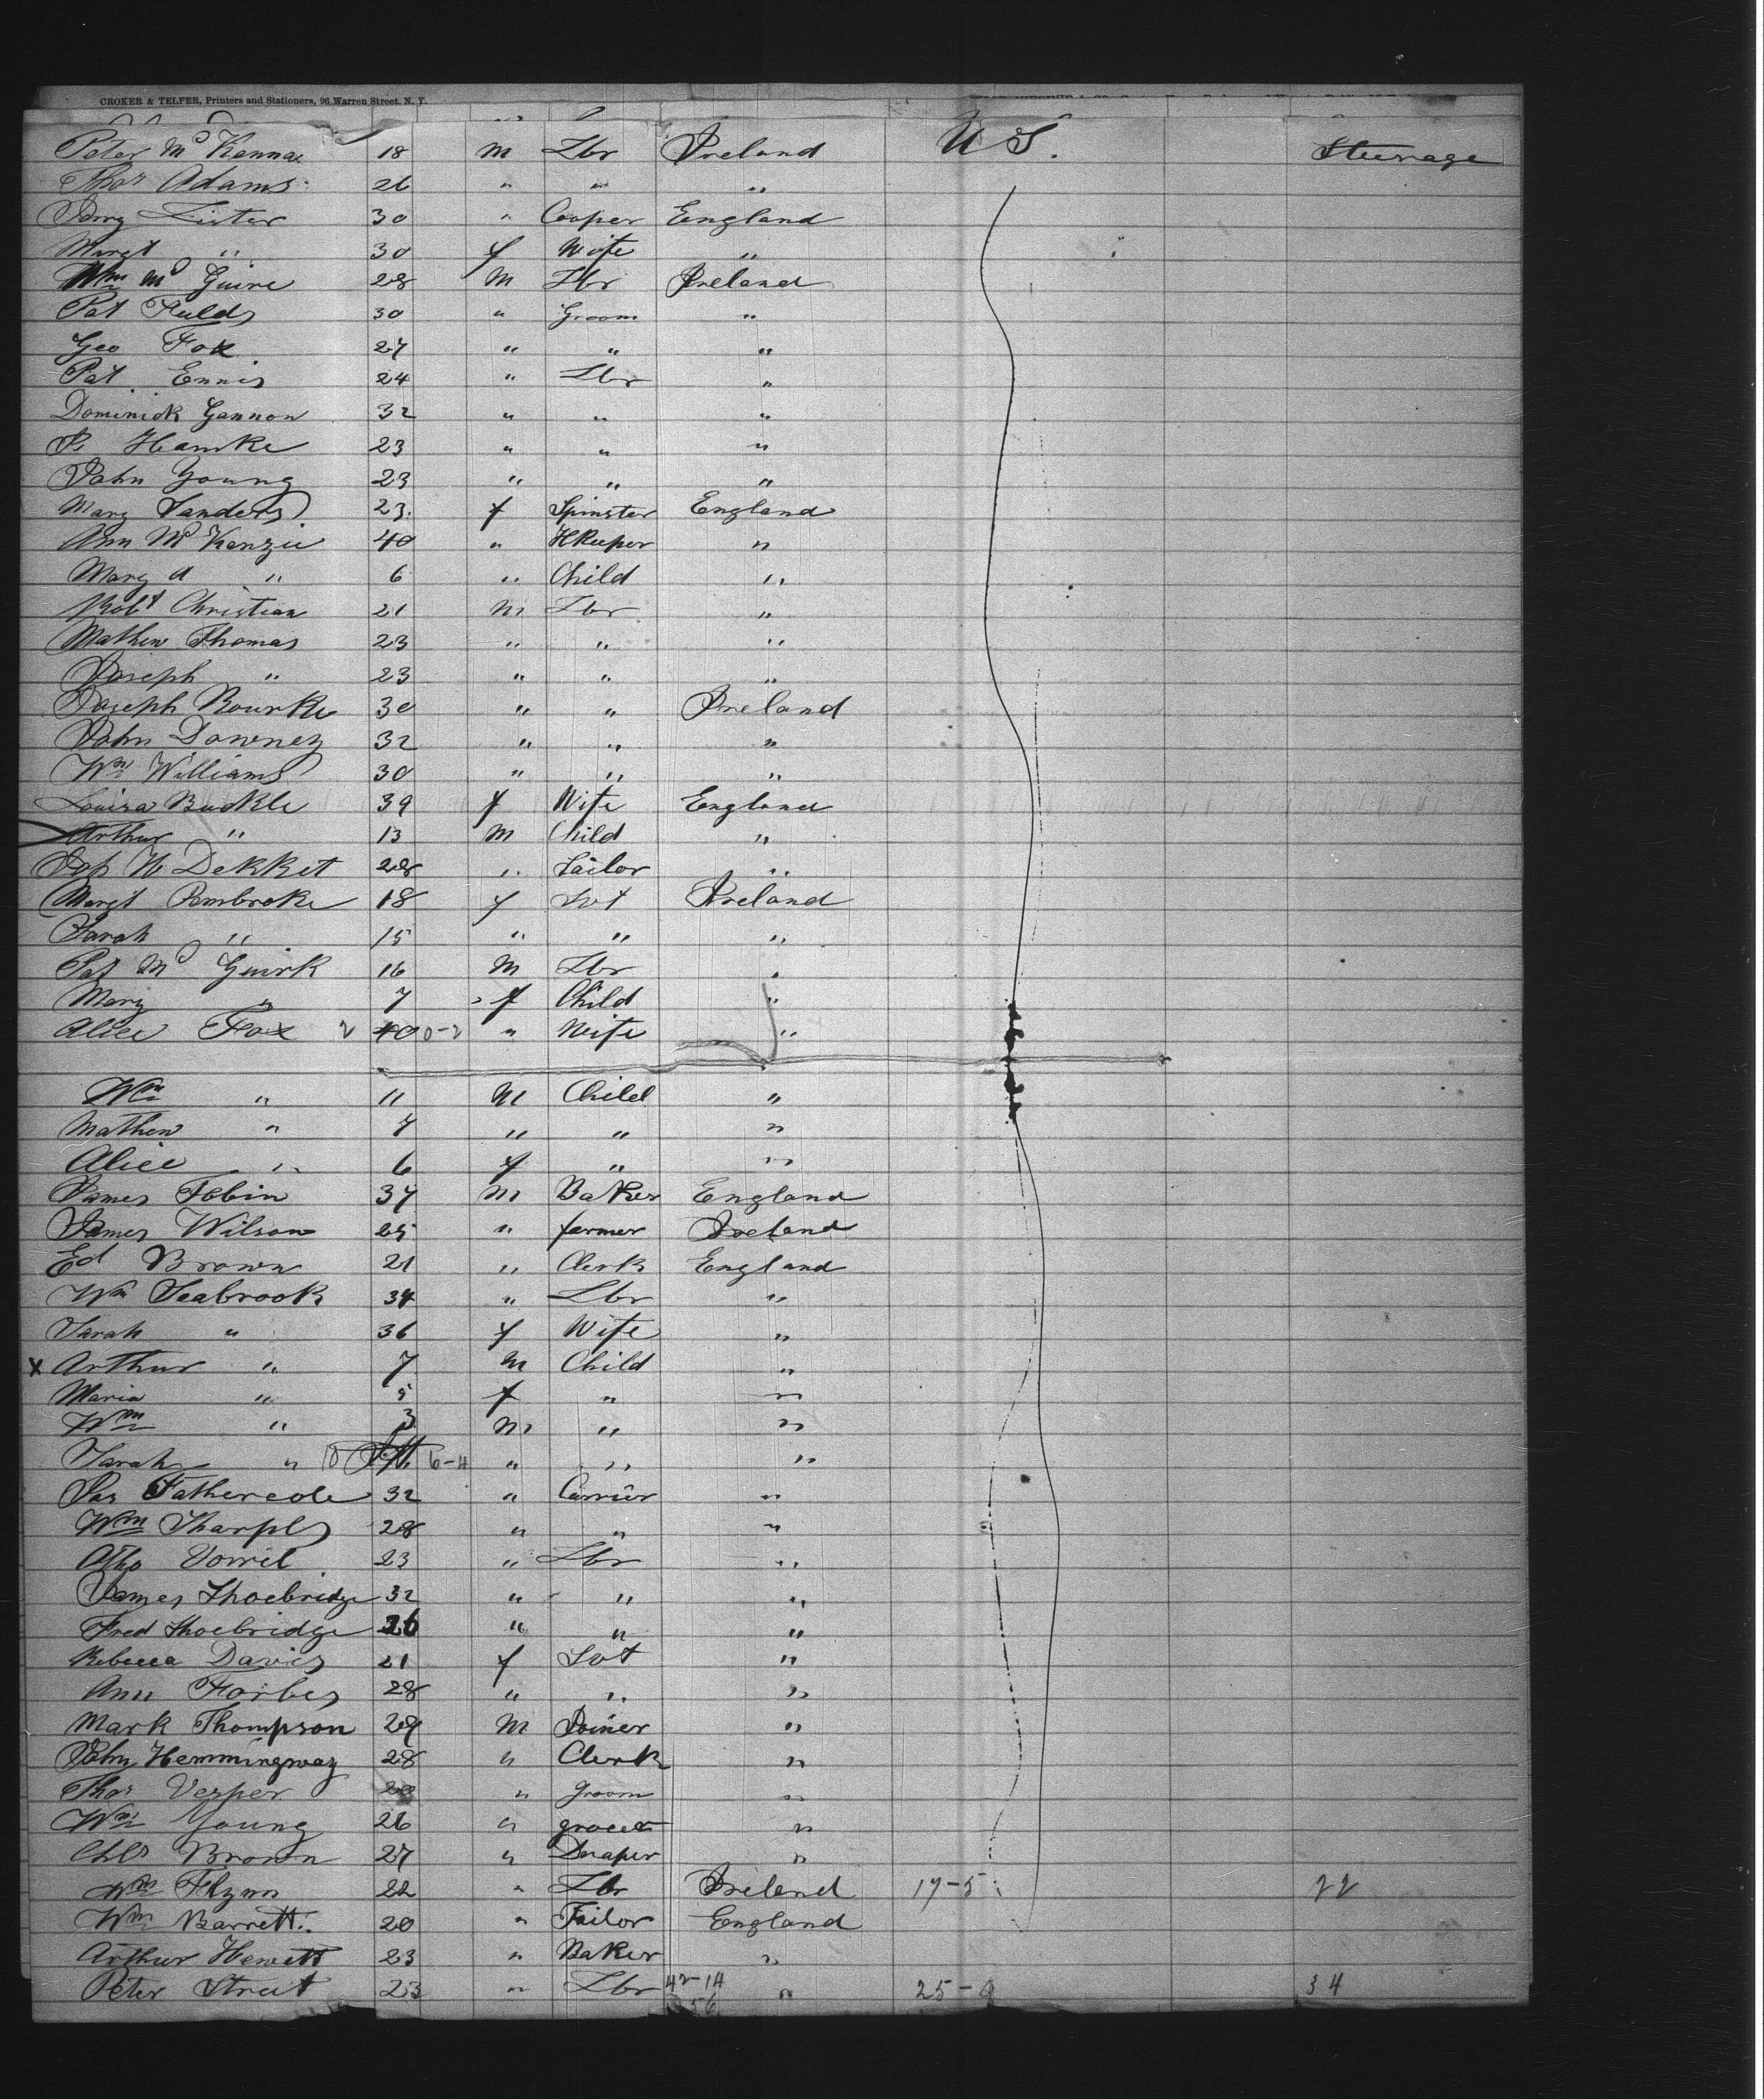 CROKER & TELFER, Printers and Stationers, 96 Warren Street, N. Y.
Peter Mc Kenna 18 m Lbr Ireland U S. Steerage
Thos Adams 26 " " "
Lister 30 " Cooper England
Margt " 30 f Wife "
Wm Mc Guire 28 m Lbr Ireland
Pat Fulds 30 " Groom "
Geo Fox 27 " " "
Pat Ennis 24 " Lbr "
Dominick Gannon 32 " " "
P. 23 " " "
John Young 23 " " "
Mary Sanders 23. f Spinster England
Ann Mc Kenzie 40 " HKeeper "
Mary A " 6 " Child "
Robt Christian 21 m Lbr "
Mathew Thomas 23 " " "
Joseph " 23 " " "
Joseph Bourke 30 " " Ireland
John Downey 32 " " "
Wm Williams 30 " " "
Louisa Buckle 39 f Wife England
Arthur " 13 m Child "
Jos H Dekket 28 " Sailor "
Margt Pembroke 18 f Svt Ireland
Sarah " 15 " " "
Pat Mc Guirk 16 m Lbr "
Mary " 7 f Child "
Alice Fox 2 40 0-2 " Wife "
Wm " 11 m Child "
Mathew " 7 " " "
Alice " 6 f " "
James Tobin 37 m Baker England
James Wilson 25 " farmer Ireland
Ed Brown 21 " Clerk England
Wm Seabrook 34 " Lbr "
Sarah " 36 f Wife "
X Arthur " 7 m Child "
Maria " 5 f " "
Wm " 3 m " "
Sarah " 6-4 " " "
Jas Fathercole 32 " Carrier "
Wm Sharples 28 " " "
Thos 23 " Lbr "
James Shoebridge 32 " " "
Fred Shoebridge 26 " " "
Rebecca Davies 21 f Svt "
Ann Forbes 28 " " "
Mark Thompson 29 m Joiner "
John Hemmingway 28 " Clerk "
Thos Vesper " Groom "
Wm Young 26 " grocer "
Chls Brown 27 " Draper "
Wm Flynn 22 " Lbr Ireland 17-5 22
Wm Barrett 20 " Tailor England
Arthur Hewett 23 " Baker "
Peter Street 23 " Lbr 42-14 " 34
56